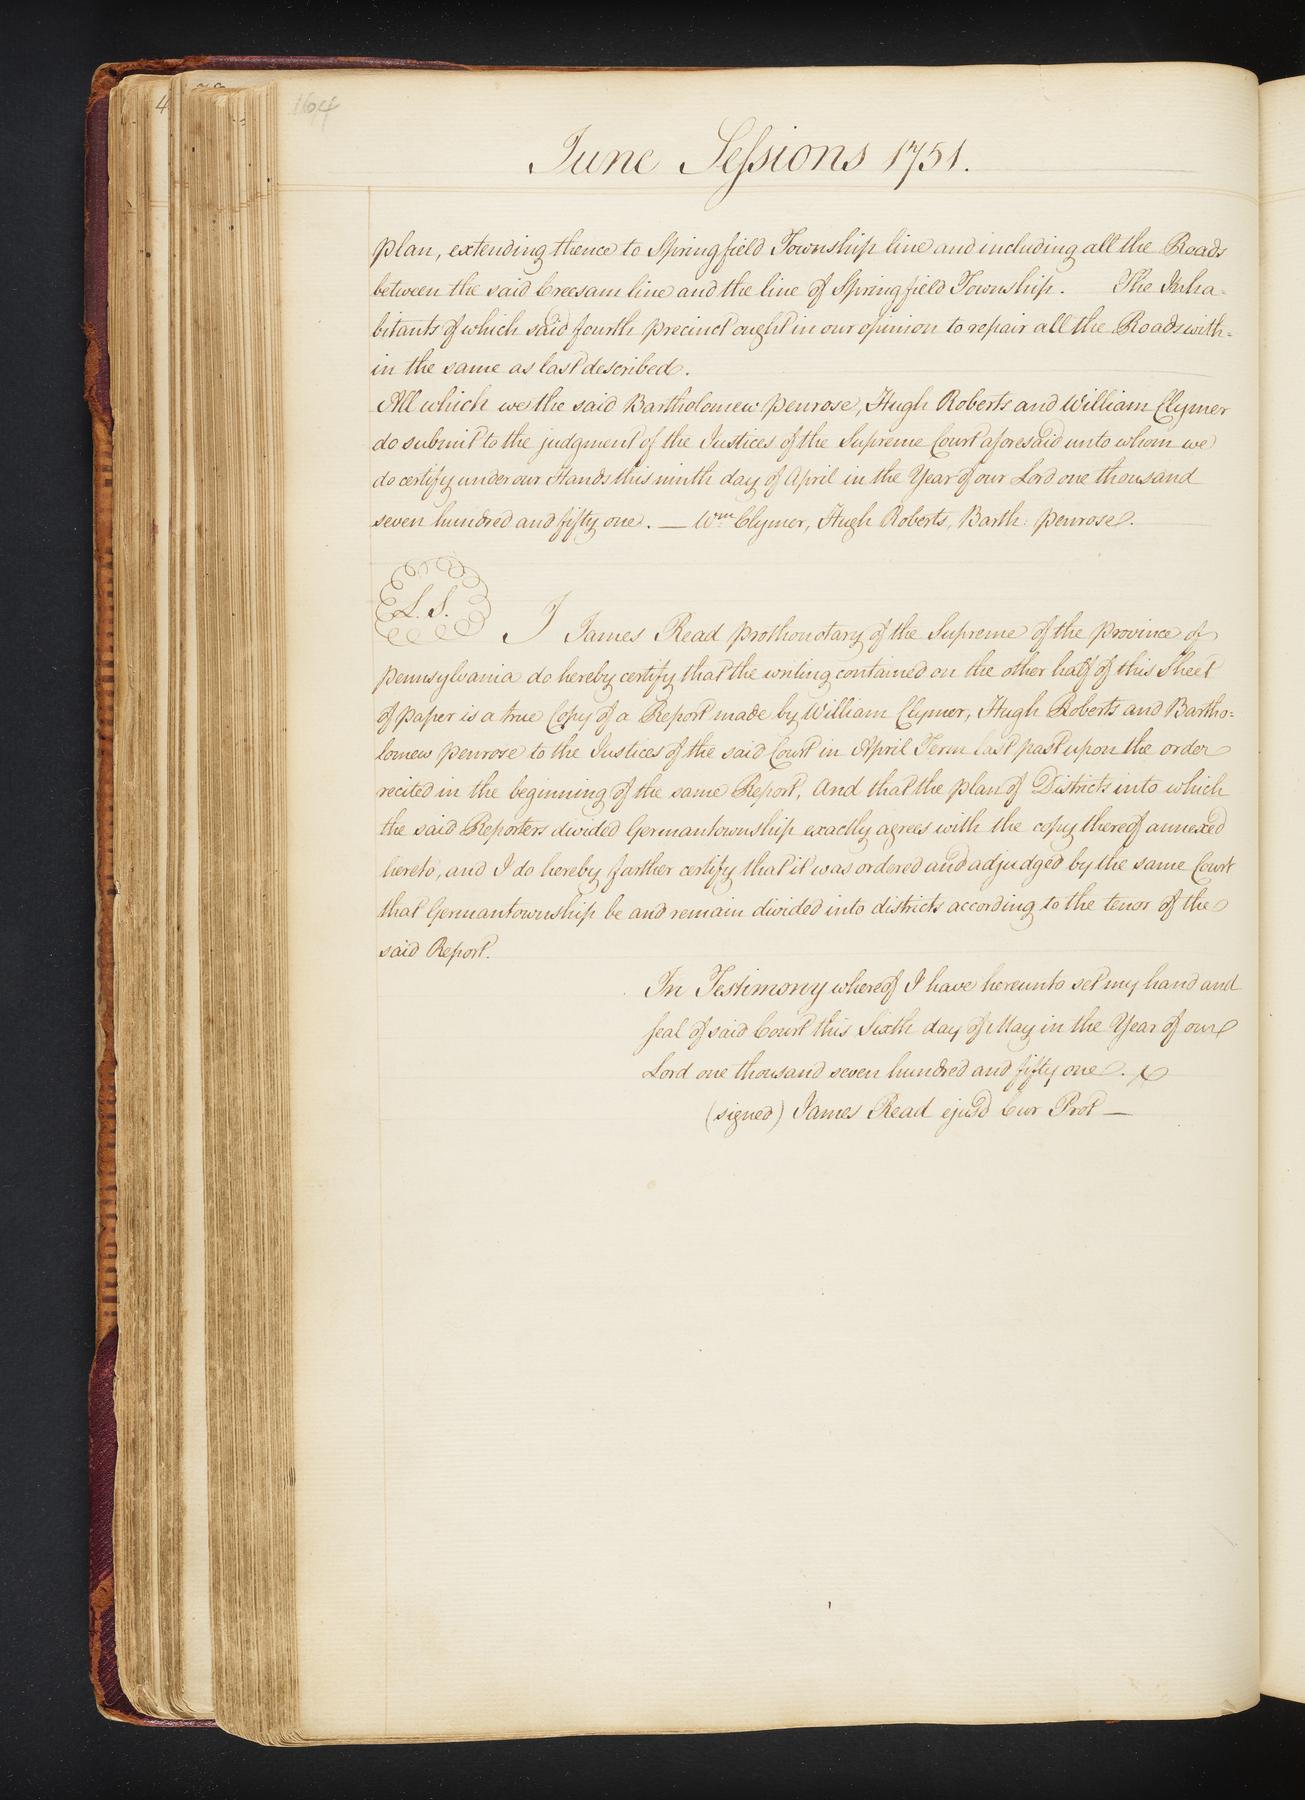 164
4
June Sessions 1751.
plan, extending thence to Springfield Township line and including all the Roads
between the said Creesam line and the line of Springfield Township. The Inha-
bitants of which said fourth precinct ought in our opinion to repair all the Roads with-
in the same as last described.
All which we the said Bartholomew Penrose, Hugh Roberts and William Clymer
do submit to the judgment of the Justices of the Supreme Court aforesaid unto whom we
do certify under our Hands this ninth day of April in the Year of our Lord one thousand
seven hundred and fifty one. — Wm Clymer, Hugh Roberts, Barth: Penrose.
L. S.
I James Read Prothonotary of the Supreme of the Province of
Pennsylvania do hereby certify that the writing contained on the other half of this Sheet
of paper is a true Copy of a Report made by William Clymer, Hugh Roberts and Bartho=
lomew Penrose to the Justices of the said Court in April Term last past upon the order
recited in the beginning of the same Report, And that the plan of Districts into which
the said Reporters divided Germantownship exactly agrees with the copy thereof annexed
hereto, and I do hereby farther certify that it was ordered and adjudged by the same Court
that Germantownship be and remain divided into districts according to the tenor of the
said Report.
In Testimony whereof I have hereunto set my hand and
seal of said Court this Sixth day of May in the Year of our
Lord one thousand seven hundred and fifty one.
(signed) James Read ejusd Cur Prot —